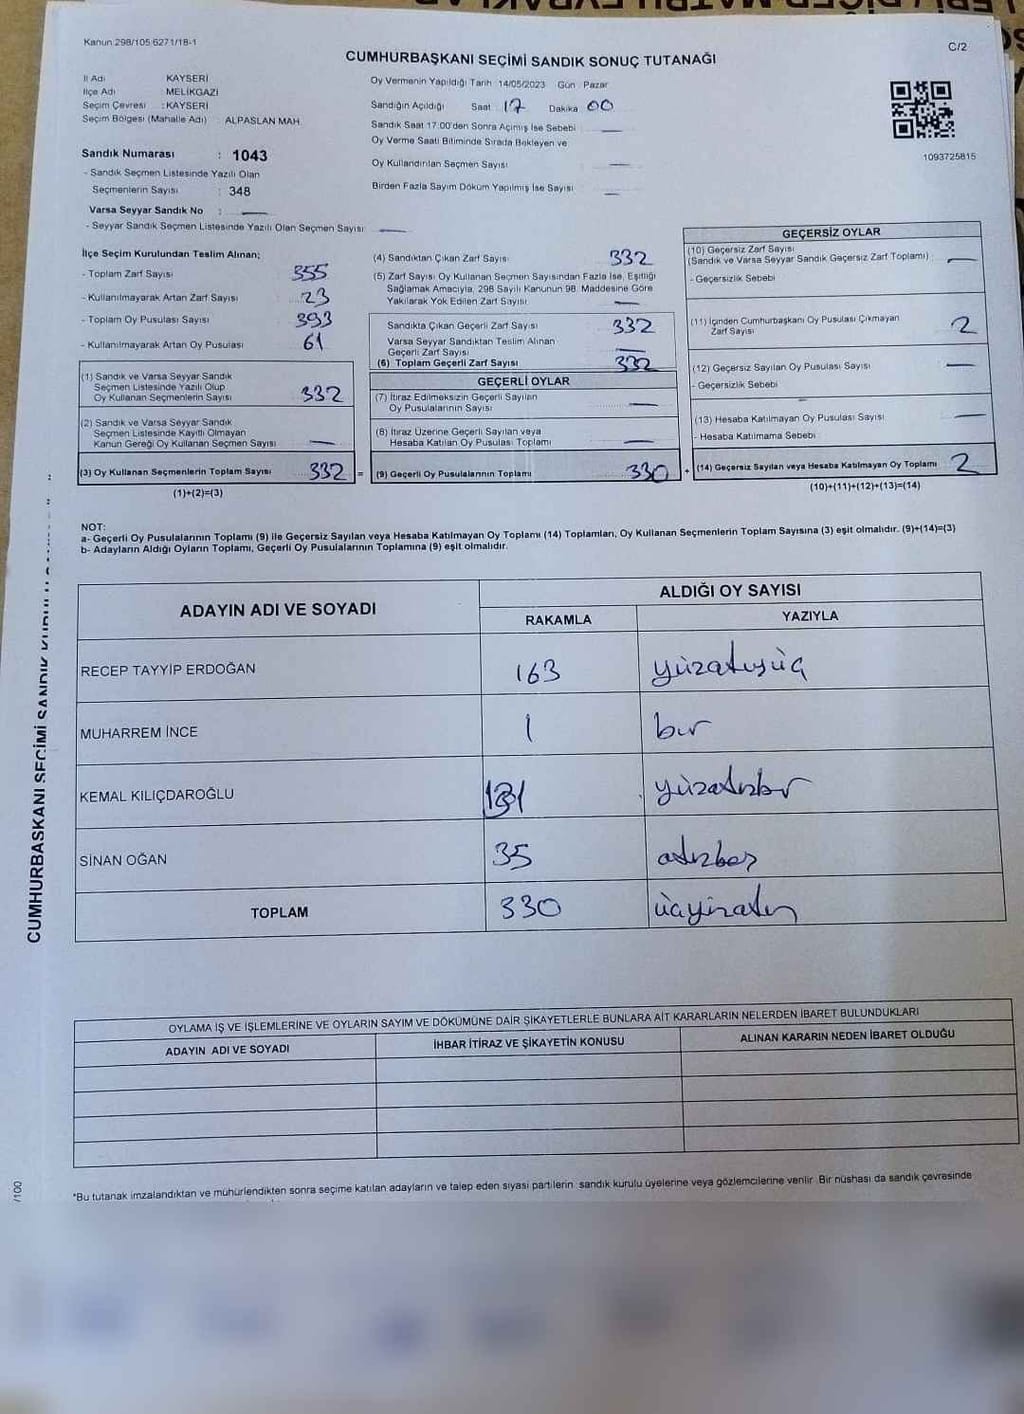 Kanun 298/105 6271/18-1
C/2
CUMHURBAŞKANI SEÇİMİ SANDIK SONUÇ TUTANAĞI
İl Adı KAYSERİ
İlçe Adı MELİKGAZİ
Seçim Çevresi : KAYSERİ
Seçim Bölgesi (Mahalle Adı) : ALPASLAN MAH.
Sandık Numarası : 1043
- Sandık Seçmen Listesinde Yazılı Olan
Seçmenlerin Sayısı : 348
Varsa Seyyar Sandık No :
- Seyyar Sandık Seçmen Listesinde Yazılı Olan Seçmen Sayısı
Oy Vermenin Yapıldığı Tarih 14/05/2023 Gün Pazar
Sandığın Açıldığı Saat 17 Dakika 00
Sandık Saat 17:00'den Sonra Açılmış İse Sebebi
Oy Verme Saati Bitiminde Sırada Bekleyen ve
Oy Kullandırılan Seçmen Sayısı
Birden Fazla Sayım Döküm Yapılmış İse Sayısı
1093725815
İlçe Seçim Kurulundan Teslim Alınan;
- Toplam Zarf Sayısı 355
- Kullanılmayarak Artan Zarf Sayısı 23
- Toplam Oy Pusulası Sayısı 393
- Kullanılmayarak Artan Oy Pusulası 61
(1) Sandık ve Varsa Seyyar Sandık
Seçmen Listesinde Yazılı Olup
Oy Kullanan Seçmenlerin Sayısı 332
(2) Sandık ve Varsa Seyyar Sandık
Seçmen Listesinde Kayıtlı Olmayan
Kanun Gereği Oy Kullanan Seçmen Sayısı
(3) Oy Kullanan Seçmenlerin Toplam Sayısı 332 =
(1)+(2)=(3)
(4) Sandıktan Çıkan Zarf Sayısı 332
(5) Zarf Sayısı Oy Kullanan Seçmen Sayısından Fazla İse, Eşitliği
Sağlamak Amacıyla, 298 Sayılı Kanunun 98. Maddesine Göre
Yakılarak Yok Edilen Zarf Sayısı
Sandıkta Çıkan Geçerli Zarf Sayısı 332
Varsa Seyyar Sandıktan Teslim Alınan
Geçerli Zarf Sayısı
(6) Toplam Geçerli Zarf Sayısı 332
GEÇERLİ OYLAR
(7) İtiraz Edilmeksizin Geçerli Sayılan
Oy Pusulalarının Sayısı
(8) İtiraz Üzerine Geçerli Sayılan veya
Hesaba Katılan Oy Pusulası Toplamı
(9) Geçerli Oy Pusulalarının Toplamı 330 +
GEÇERSİZ OYLAR
(10) Geçersiz Zarf Sayısı
(Sandık ve Varsa Seyyar Sandık Geçersiz Zarf Toplamı)
- Geçersizlik Sebebi
(11) İçinden Cumhurbaşkanı Oy Pusulası Çıkmayan
Zarf Sayısı 2
(12) Geçersiz Sayılan Oy Pusulası Sayısı
- Geçersizlik Sebebi
(13) Hesaba Katılmayan Oy Pusulası Sayısı
- Hesaba Katılmama Sebebi
(14) Geçersiz Sayılan veya Hesaba Katılmayan Oy Toplamı 2
(10)+(11)+(12)+(13)=(14)
NOT:
a- Geçerli Oy Pusulalarının Toplamı (9) ile Geçersiz Sayılan veya Hesaba Katılmayan Oy Toplamı (14) Toplamları, Oy Kullanan Seçmenlerin Toplam Sayısına (3) eşit olmalıdır. (9)+(14)=(3)
b- Adayların Aldığı Oyların Toplamı, Geçerli Oy Pusulalarının Toplamına (9) eşit olmalıdır.
ADAYIN ADI VE SOYADI
ALDIĞI OY SAYISI
RAKAMLA YAZIYLA
RECEP TAYYİP ERDOĞAN 163 yüzatmışüç
MUHARREM İNCE 1 bir
KEMAL KILIÇDAROĞLU 131 yüzotuzbir
SİNAN OĞAN 35 otuzbeş
TOPLAM 330 üçyüzotuz
OYLAMA İŞ VE İŞLEMLERİNE VE OYLARIN SAYIM VE DÖKÜMÜNE DAİR ŞİKAYETLERLE BUNLARA AİT KARARLARIN NELERDEN İBARET BULUNDUKLARI
ADAYIN ADI VE SOYADI İHBAR İTİRAZ VE ŞİKAYETİN KONUSU ALINAN KARARIN NEDEN İBARET OLDUĞU
*Bu tutanak imzalandıktan ve mühürlendikten sonra seçime katılan adayların ve talep eden siyasi partilerin sandık kurulu üyelerine veya gözlemcilerine verilir. Bir nüshası da sandık çevresinde
/100